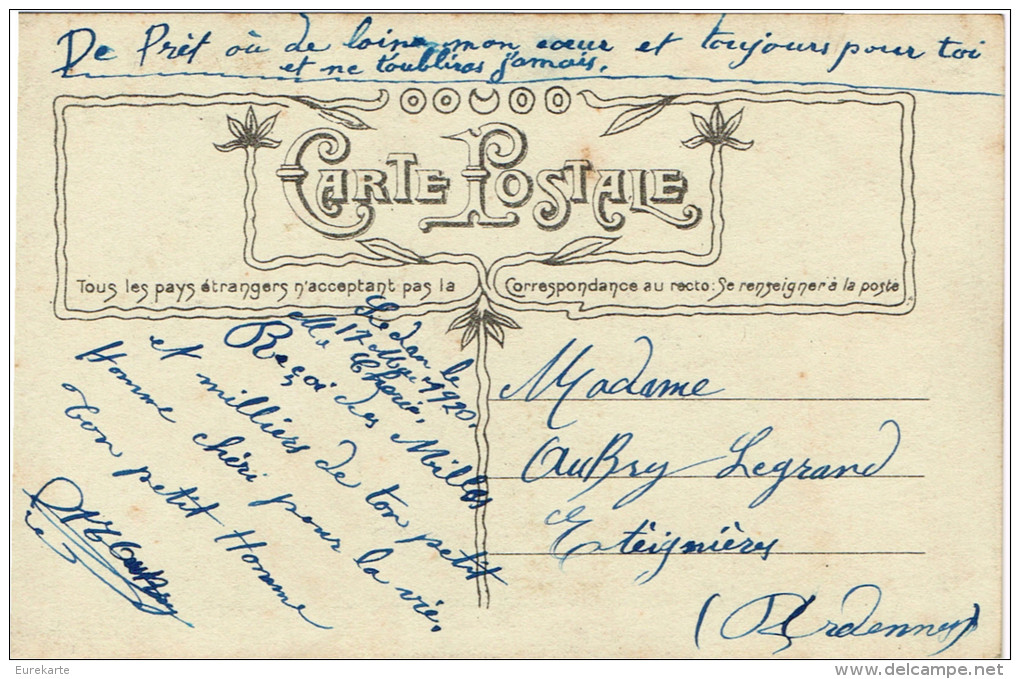 De Prèt où de loins mon cœur et toujours pour toi
et ne toubliras j'amais.
CARTE POSTALE
Tous les pays étrangers n'acceptant pas la Correspondance au recto: Se renseigner à la poste
Sedan le
17 Mai 1920.
Ma Cherie,
Reçoi des Milles
et milliers de ton petit
Homme chéri pour la vie.
Ton petit Homme
Madame
AuBry Legrand
Etéignières
(Ardennes)
Eurekarte
www.delcampe.net